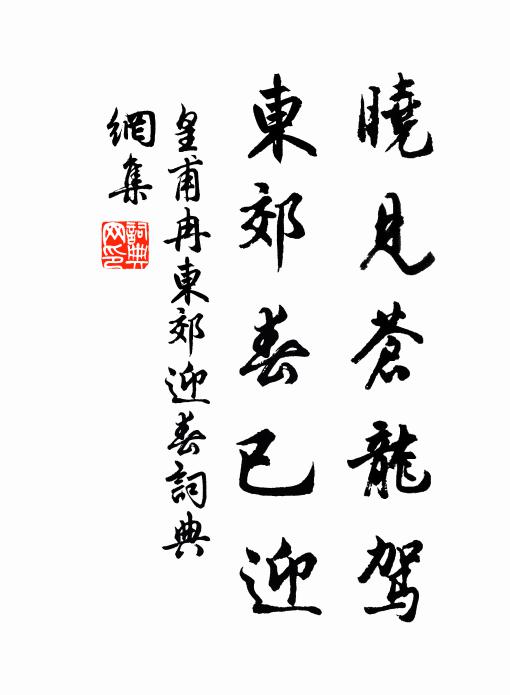 曉見蒼龍駕
東郊春已迎
皇甫冉東郊迎春詞典
網集
詞典
网印